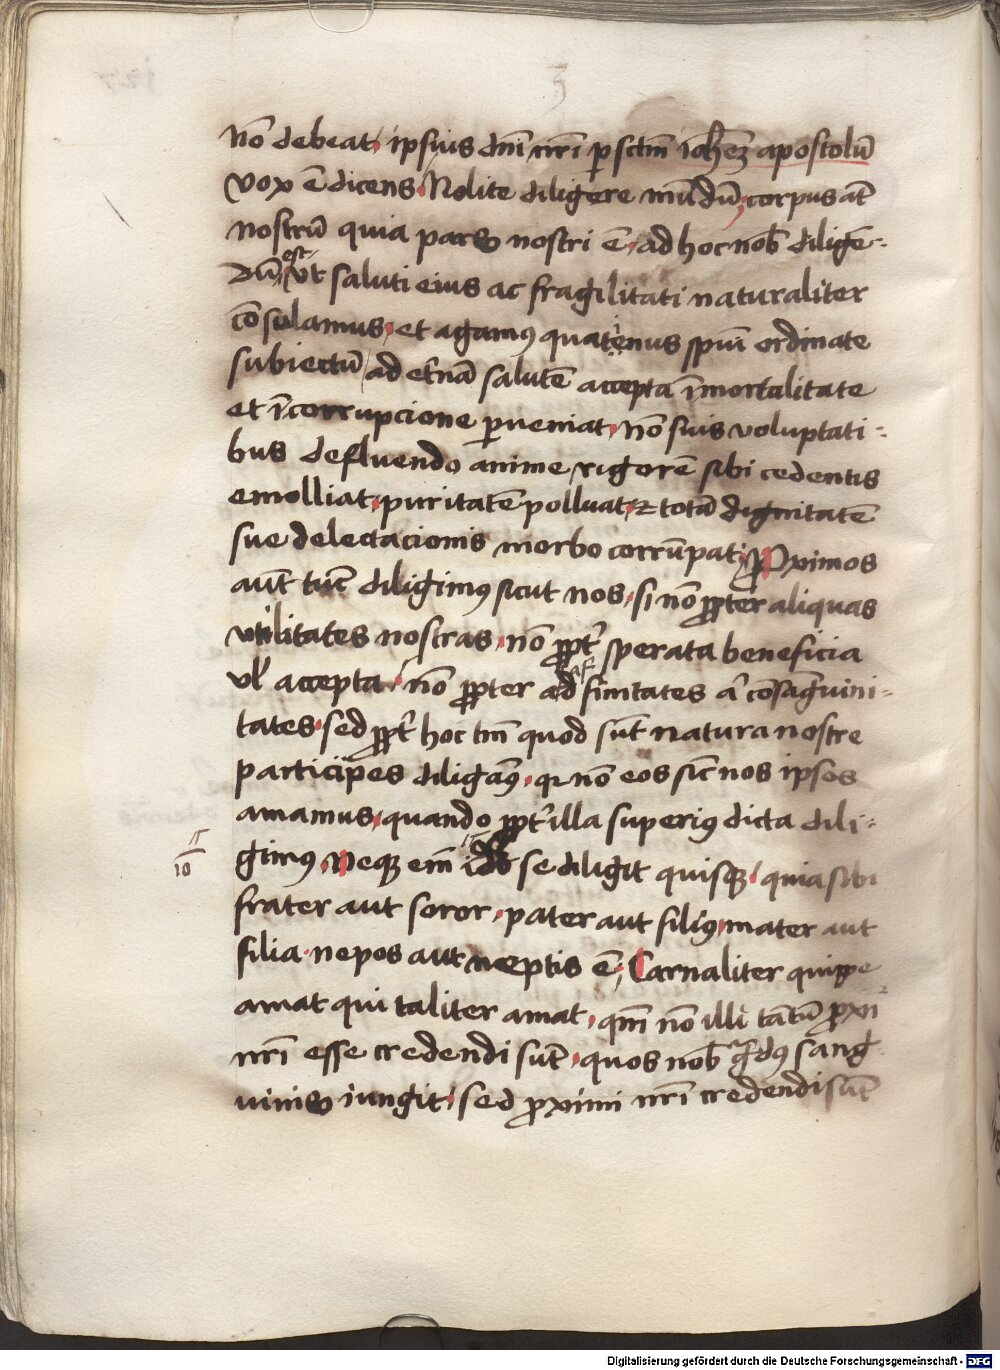 3
nō debeat, ipsius dn̄i nr̄i p̱ sctm̄ ioh̄eꝫ apostolū
vox ē dicens. Nolite diligere mūdū, corpus at̄
nostrū quia pars nostri ē. ad hoc nob̄ diligē-
dū est vt saluti eius ac fragilitati naturaliter
cōsulamus, et agamꝰ quatenus spūi ordinate
subiectū ad et̄nā salutē accepta īmortalitate
et īcorrupcione p̱ueniat, nō suis voluptati-
bus defluendo anime rigorē sibi cedentis
emolliat, puritatē polluat, ⁊ totā dignitatē
sue delectacionis morbo corrūpat. Proximos
aūt tūc diligimꝰ sicut nos, si nō prop̱ter aliquas
vtilitates nostras, nō prop̱t̄ sperata beneficia
vl̄ accepta, nō prop̱ter affinitates a̓ cōsāguini-
tates, sed prop̱t̄ hoc tm̄ quod sūt natura nostre
participes diligamꝰ, qꝛ nō eos sic̄ nos ipsos
amamus, quando prop̱t̄ illa superiꝰ dicta dili-
10
gimꝰ, Neqꝫ em̄ se diligit quisqꝫ, quia sibi
frater aut soror, pater aut filiꝰ, mater aut
filia, nepos aut neptis ē, Carnaliter quippe
amat qui taliter amat, qm̄ nō illi tātū prox̄i
nr̄i esse credendi sūt, quos nob̄ g̓dꝰ sang
uinis iungit, sed proximi nr̄i credendi sūt
Digitalisierung gefördert durch die Deutsche Forschungsgemeinschaft - DFG